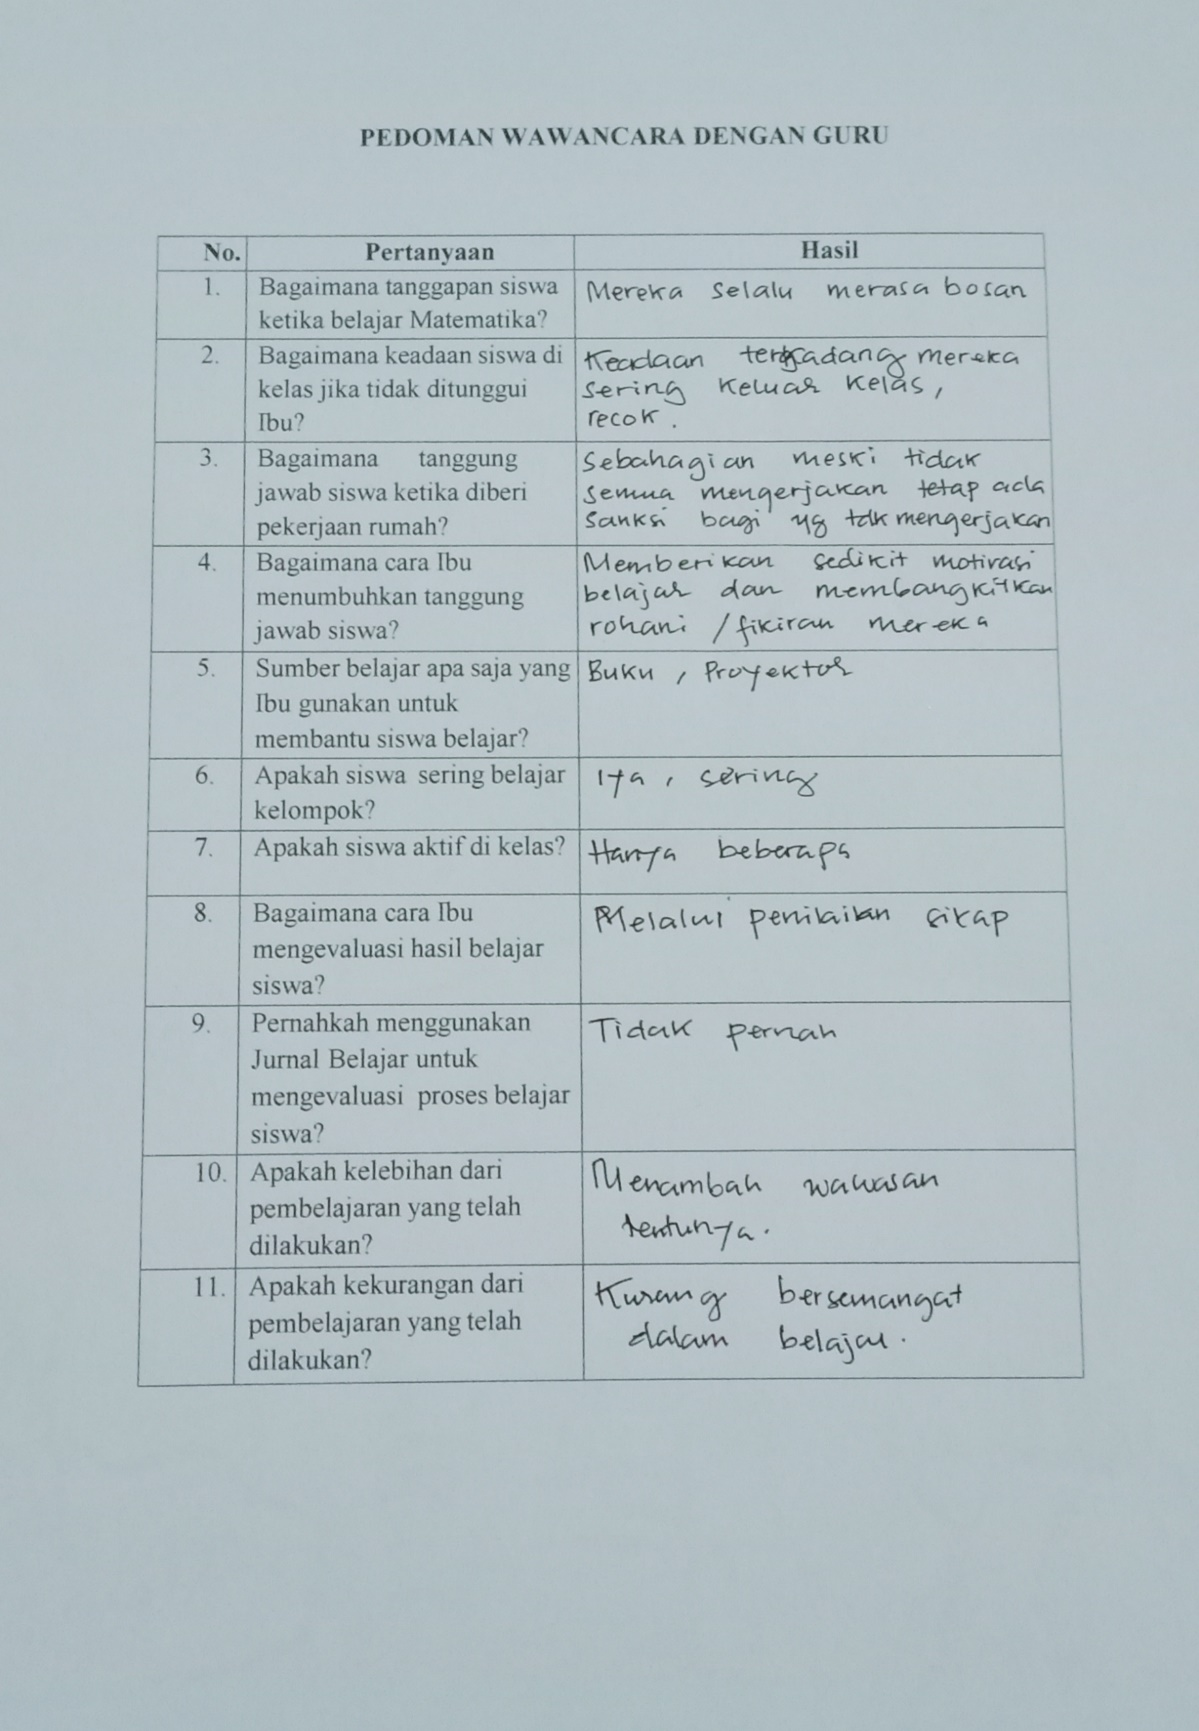 PEDOMAN WAWANCARA DENGAN GURU
No. Pertanyaan Hasil
1. Bagaimana tanggapan siswa
ketika belajar Matematika?
Mereka selalu merasa bosan
2. Bagaimana keadaan siswa di
kelas jika tidak ditunggui
Ibu?
Keadaan terkadang mereka
sering keluar kelas,
recok.
3. Bagaimana tanggung
jawab siswa ketika diberi
pekerjaan rumah?
Sebahagian meski tidak
semua mengerjakan tetap ada
sanksi bagi yg tdk mengerjakan
4. Bagaimana cara Ibu
menumbuhkan tanggung
jawab siswa?
Memberikan sedikit motivasi
belajar dan membangkitkan
rohani / fikiran mereka
5. Sumber belajar apa saja yang
Ibu gunakan untuk
membantu siswa belajar?
Buku, Proyektor
6. Apakah siswa sering belajar
kelompok?
Iya, sering
7. Apakah siswa aktif di kelas?
Hanya beberapa
8. Bagaimana cara Ibu
mengevaluasi hasil belajar
siswa?
Melalui penilaian sikap
9. Pernahkah menggunakan
Jurnal Belajar untuk
mengevaluasi proses belajar
siswa?
Tidak pernah
10. Apakah kelebihan dari
pembelajaran yang telah
dilakukan?
Menambah wawasan
tentunya.
11. Apakah kekurangan dari
pembelajaran yang telah
dilakukan?
Kurang bersemangat
dalam belajar.